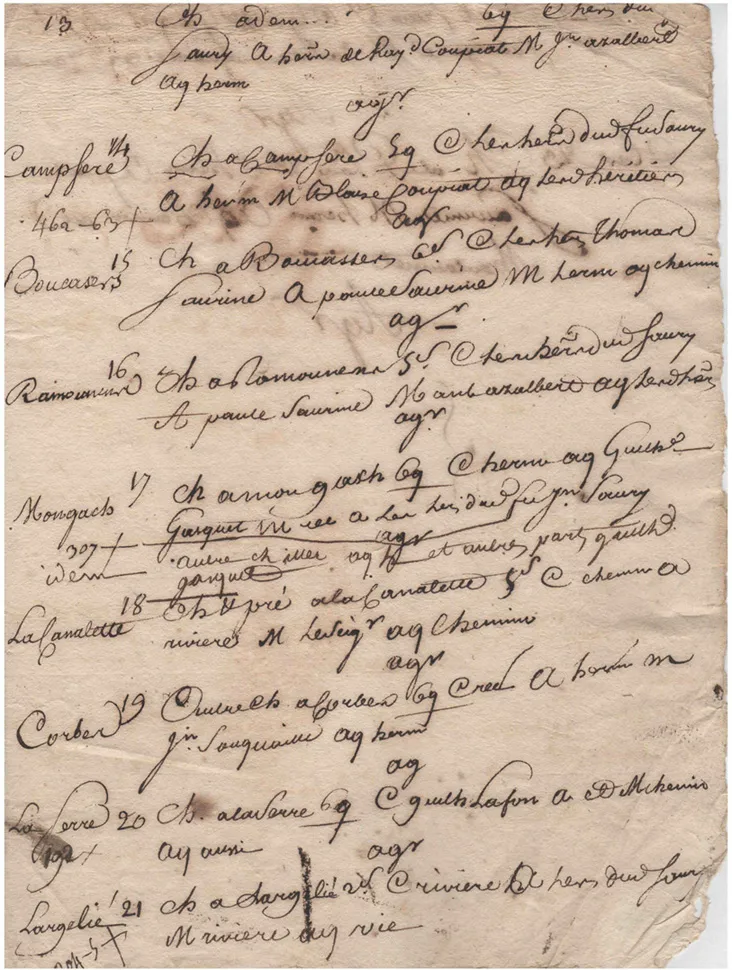 13 Ch adem... 6q C hers dud
Saury A herm de Ray.d Coupiat M Jn azalbert
aq herm
agr
Campferé 14 Ch a Campferé 5q C her herm dud fu Saury
A herm M Blaise Coupiat aq lesd héretiers
462-63 agr
Boucasers 15 Ch a Boucassers 6s C her hers Thomas
Saurine A paule Saurine M herm aq chemin
agr
Ramounenc 16 Ch a Ramounenc 5s C her hers dud Saury
A paule Saurine M ant azalbert aq lesd hers
agr
Mongach 17 Ch a mongach 6q C herm aq Guilhe
307 Gasquet M rec A les hers dud fu Jn Saury
agr
idem autre ch aq h et autres parts guilhe
gasquet
La Canalette 18 Ch pré a la Canalette 5s C chemin A
riviere M le Seigr aq Chemin
agr
Corbes 19 Autre Ch a Corbes 6q C rec A herm M
Jn Souquairie aq herm
ag
La Serre 20 Ch. a la Serre 6q C guilh Lafon A et M chemin
192 aq aussi agr
Largelié 21 Ch a Largelié 2s C riviere A hers dud Saury
M riviere aq vie